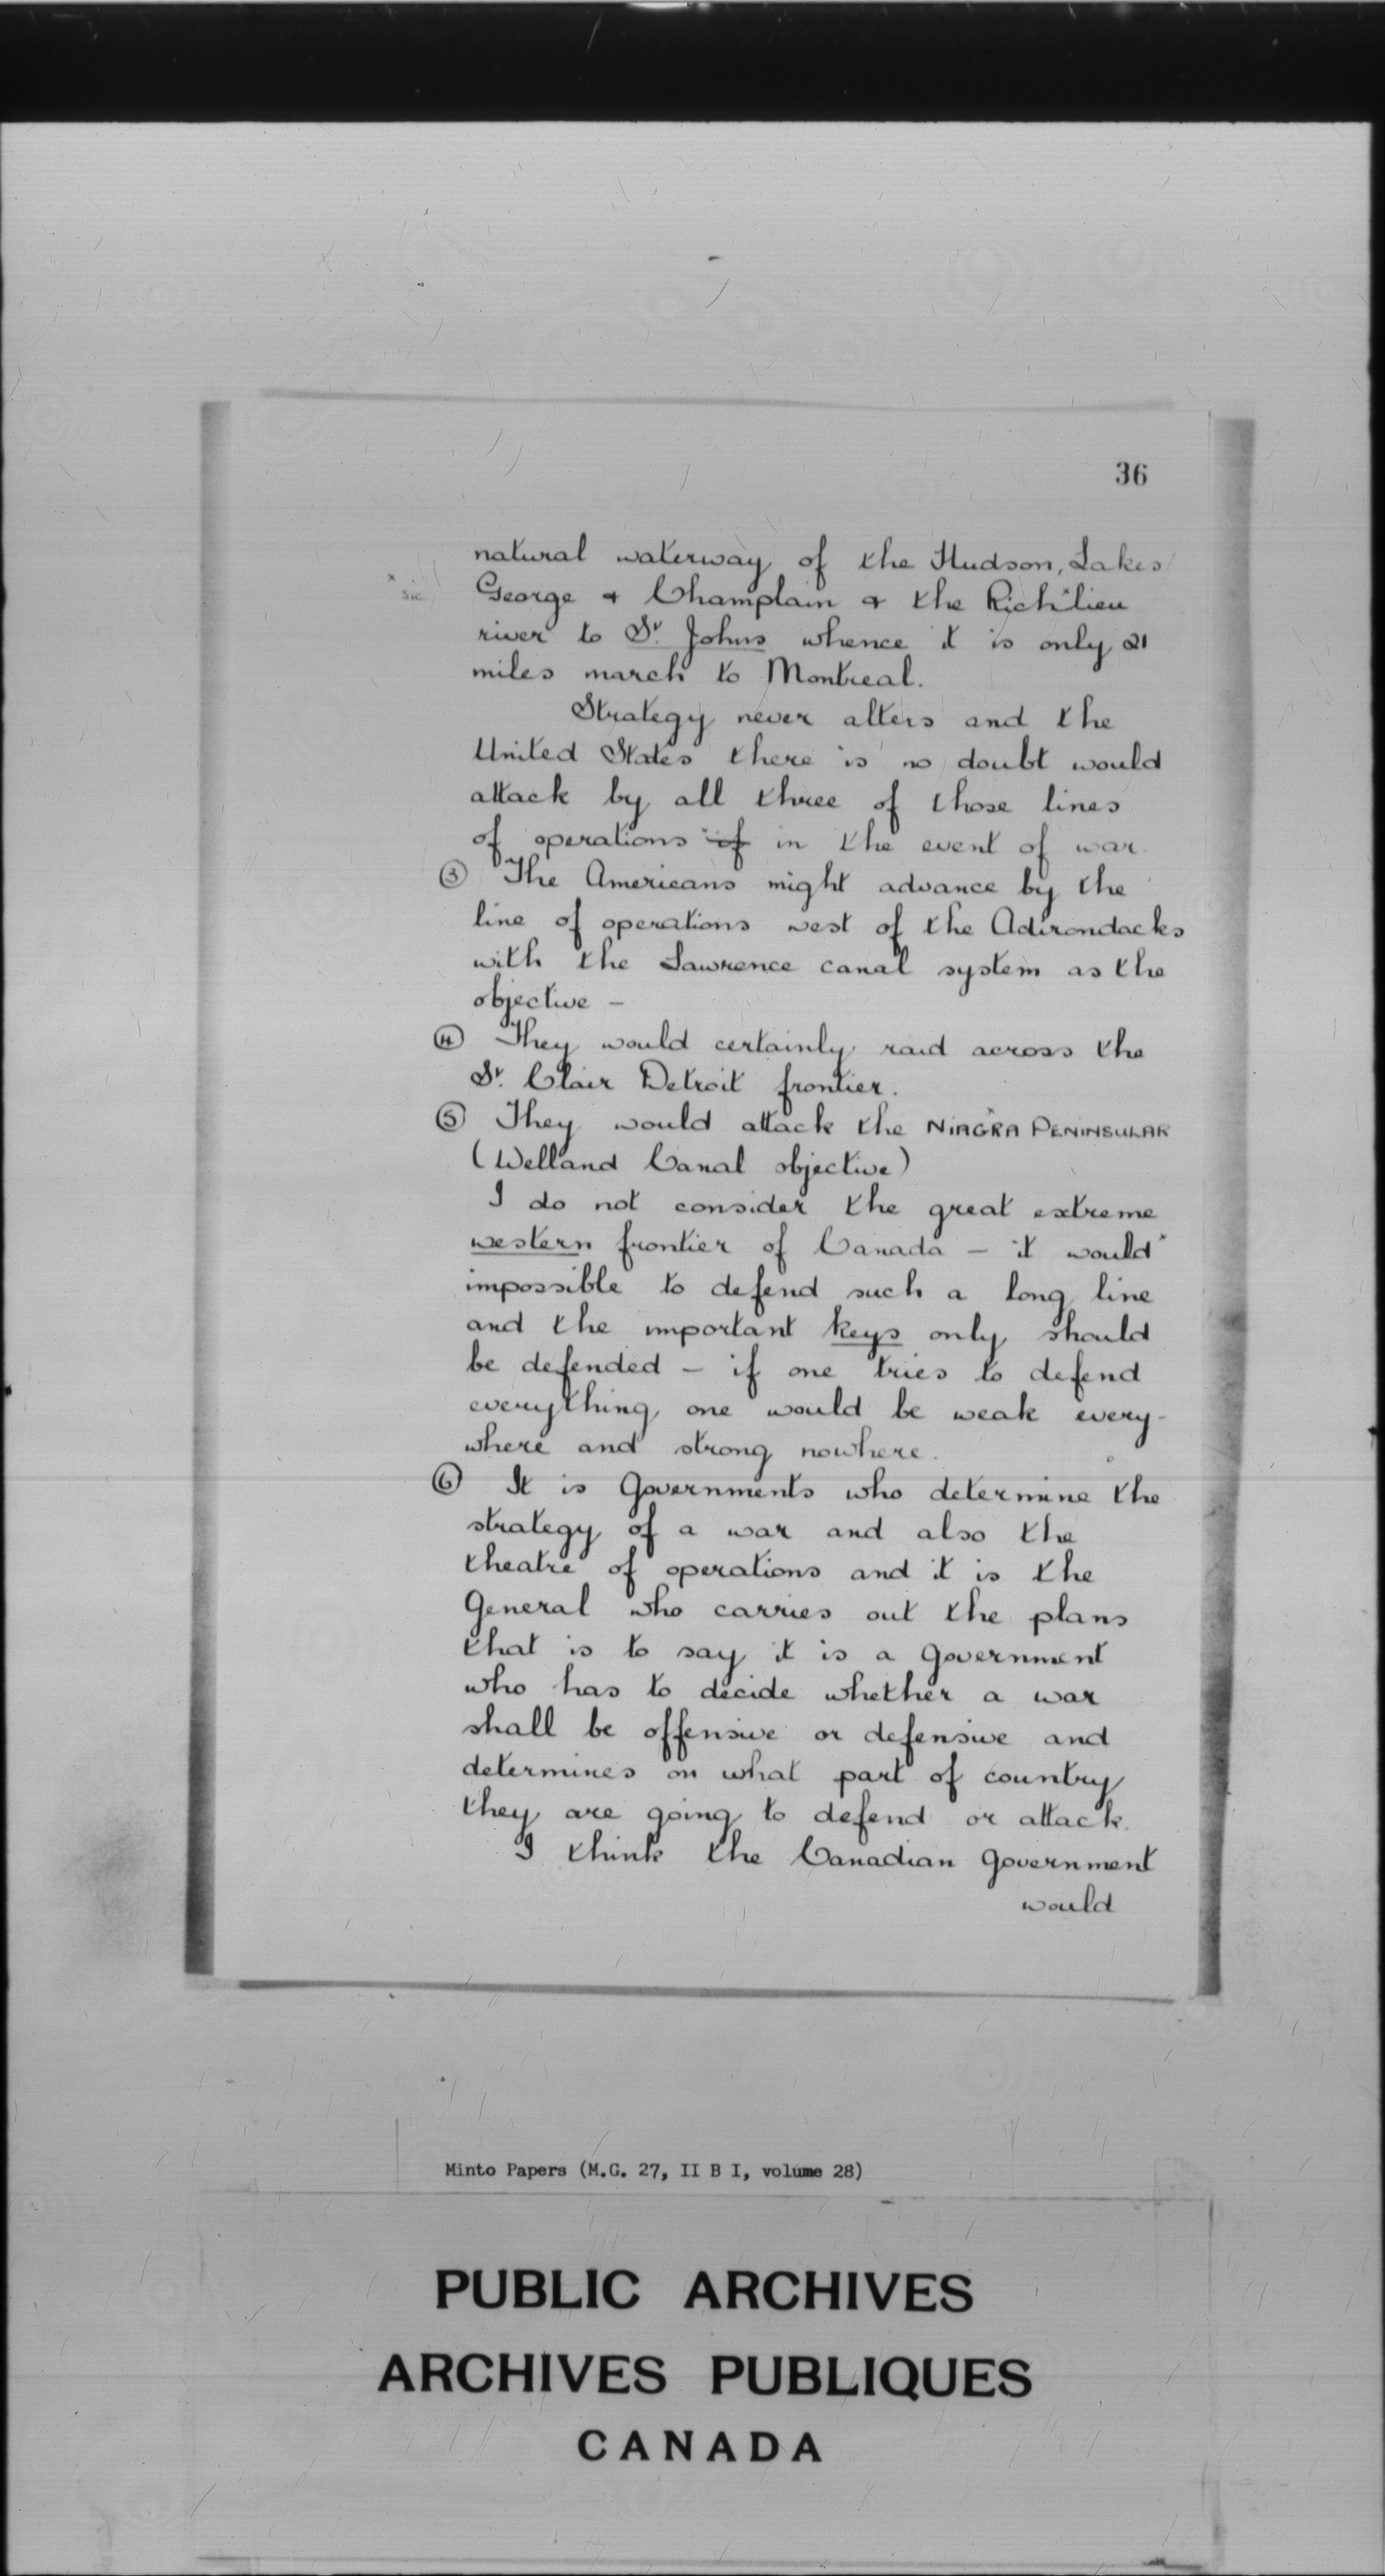 36
natural waterway of the Hudson, Lakes
x sic) George & Champlain & the Rich x lieu
river to St. Johns whence it is only 21
miles march to Montreal.
Strategy never alters and the
United States there is no doubt would
attack by all three of those lines
of operations of in the event of war.
③ The Americans might advance by the
line of operations west of the Adirondacks
with the Lawrence canal system as the
objective -
④ They would certainly raid across the
St. Clair Detroit frontier.
⑤ They would attack the NIAGRA PENINSULAR
(Welland Canal objective)
I do not consider the great extreme
western frontier of Canada - it would x
impossible to defend such a long line
and the important keys only should
be defended - if one tries to defend
everything, one would be weak every-
where and strong nowhere.
⑥ It is Governments who determine the
strategy of a war and also the
theatre of operations and it is the
General who carries out the plans
that is to say it is a Government
who has to decide whether a war
shall be offensive or defensive and
determines on what part of country
they are going to defend or attack.
I think the Canadian Government
would
Minto Papers (M.G. 27, II B I, volume 28)
PUBLIC ARCHIVES
ARCHIVES PUBLIQUES
CANADA